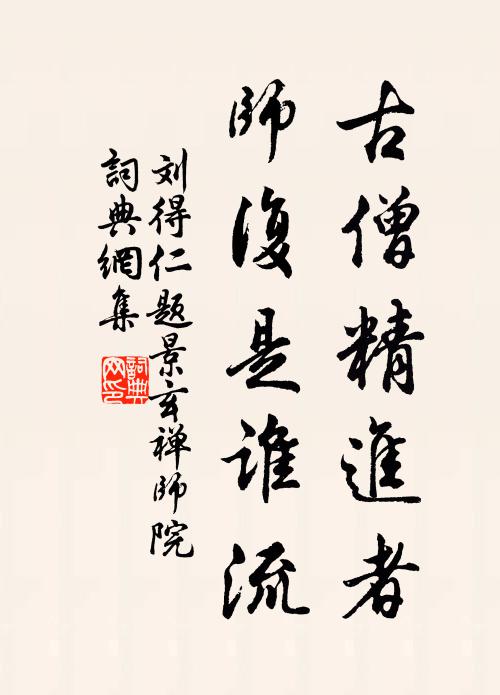 古僧精進者
師復是誰流
刘得仁题景玄禅师院
詞典網集
詞典网印